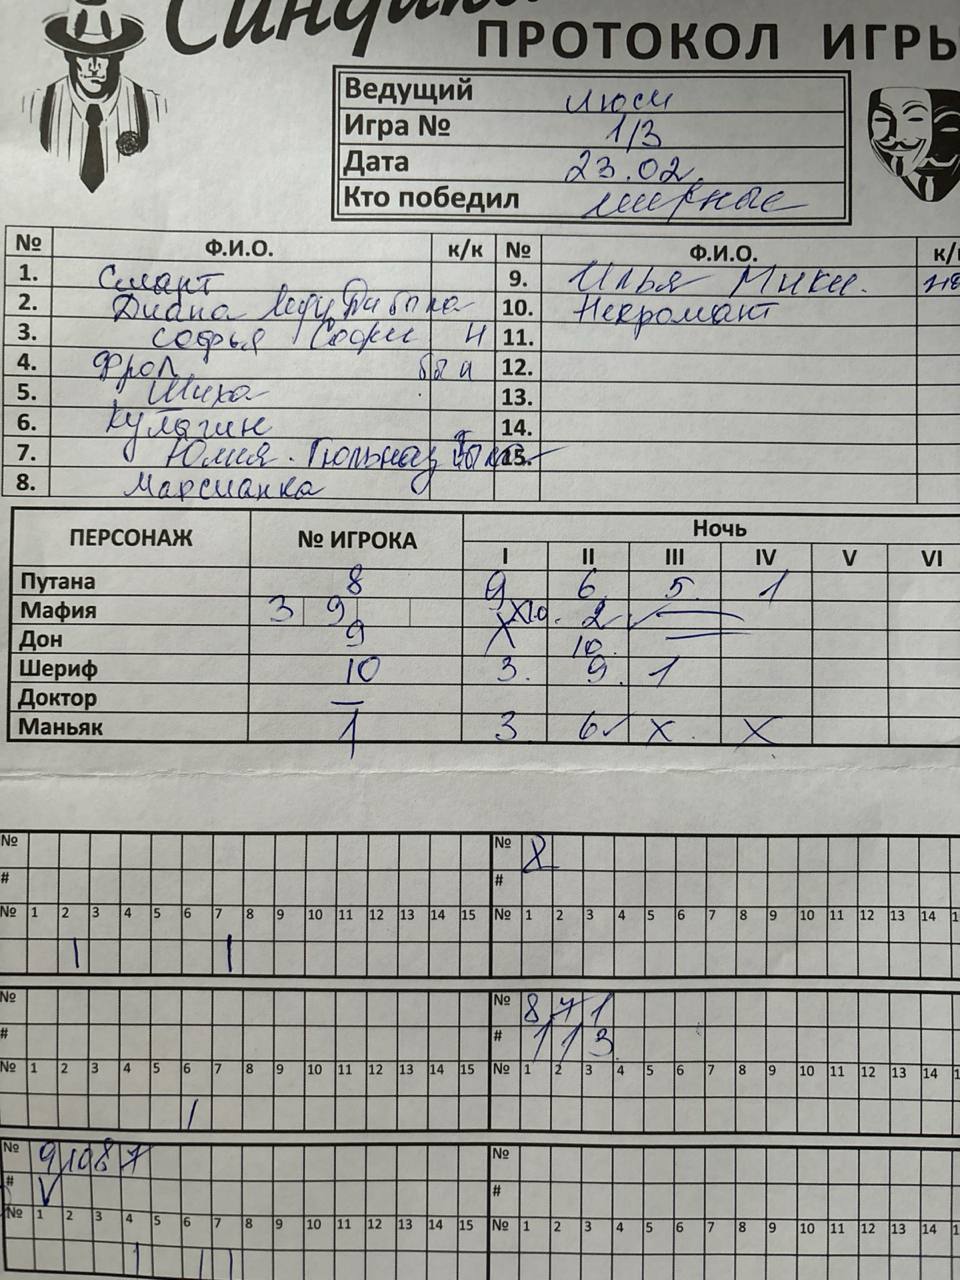 Синдик
ПРОТОКОЛ ИГРЫ
Ведущий Люси
Игра № 1/3
Дата 23.02.
Кто победил мирные
№ Ф.И.О. к/к № Ф.И.О. к/к
1. Смант 9. Илья Мики.
2. Диана Леди 10. Некромант
3. Софья Софи Н 11.
4. Фрол 12.
5. Шиха 13.
6. Кулагин 14.
7. Юлия. Гюльназ 15.
8. Марсианка
ПЕРСОНАЖ № ИГРОКА Ночь
I II III IV V VI
Путана 8 9 6. 5. 1
Мафия 3 9 X10. 2 ✓
Дон 9 X 10.
Шериф 10 3. 9. 1
Доктор —
Маньяк 1 3 6✓ X. X
№ № 8
# #
№ 1 2 3 4 5 6 7 8 9 10 11 12 13 14 15 № 1 2 3 4 5 6 7 8 9 10 11 12 13 14
| |
№ № 8 7 1
# # 1 1 3
№ 1 2 3 4 5 6 7 8 9 10 11 12 13 14 15 № 1 2 3 4 5 6 7 8 9 10 11 12 13 14
|
№ 9 10 8 7 №
# V #
№ 1 2 3 4 5 6 7 8 9 10 11 12 13 14 15 № 1 2 3 4 5 6 7 8 9 10 11 12 13 14
| | |